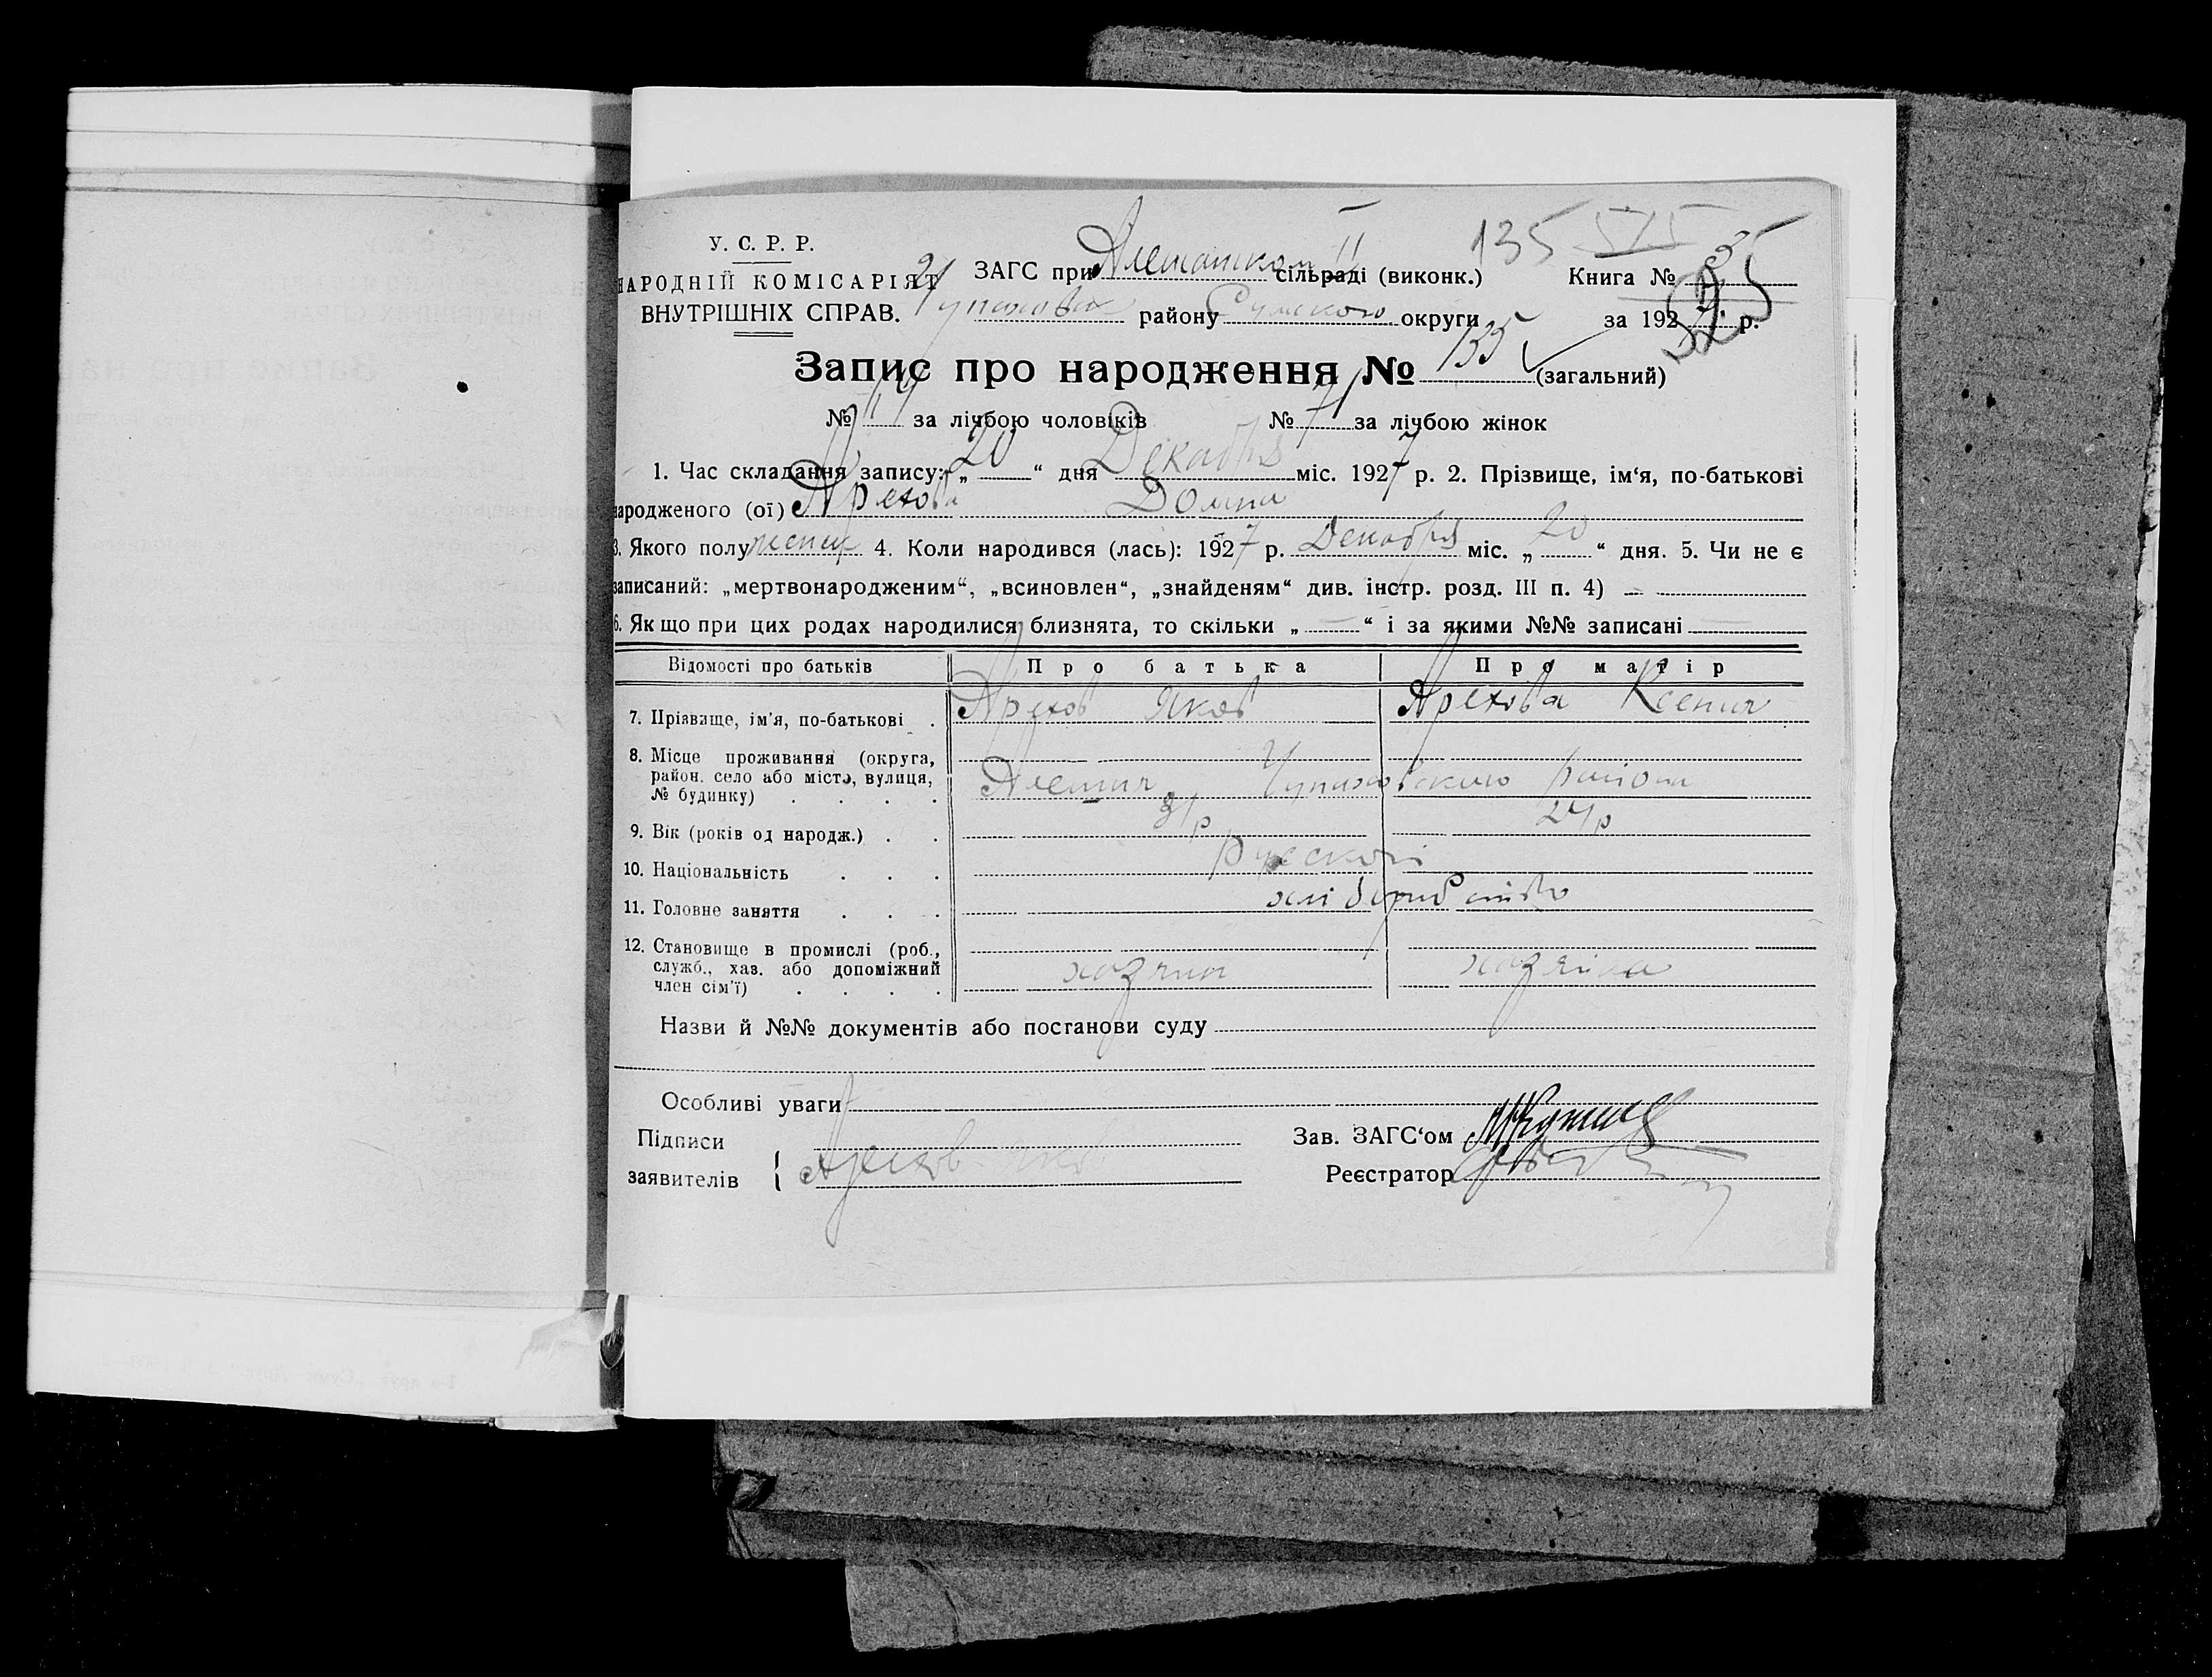 135 515
У. С. Р. Р. ЗАГС при Алешанском II сільраді (виконк.) Книга № 35
НАРОДНІЙ КОМІСАРІЯТ
ВНУТРІШНІХ СПРАВ. району Сумского округи за 1927 р.
Запис про народження № 135 (загальний)
№ за лічбою чоловіків № 71 за лічбою жінок
1. Час складання запису: „20“ дня Декабря міс. 1927 р. 2. Прізвище, ім‘я, по-батькові
народженого (ої) Арехова Домна
3. Якого полу женск 4. Коли народився (лась): 1927 р. Декабря міс. „20“ дня. 5. Чи не є
записаний: „мертвонародженим“, „всиновлен“, „знайденям“ див. інстр. розд. III п. 4) —
6. Якщо при цих родах народилися близнята, то скільки „—“ і за якими №№ записані —
Відомості про батьків Про батька Про матір
7. Прізвище, ім‘я, по-батькові . Арехов Яков Арехова Ксения
8. Місце проживання (округа,
район. село або місто, вулиця, Алешня Чупаховского района
№ будинку) . . . .
9. Вік (років од народж.) . . 31р 24р
10. Національність . . . русской
11. Головне заняття . . . хліборобство
12. Становище в промислі (роб.,
служб., хаз. або допоміжний хозяин хозяйка
член сім‘ї) . . . .
Назви й №№ документів або постанови суду
Особливі уваги
Підписи Зав. ЗАГС‘ом
заявителів { Арехов Яков Реєстратор